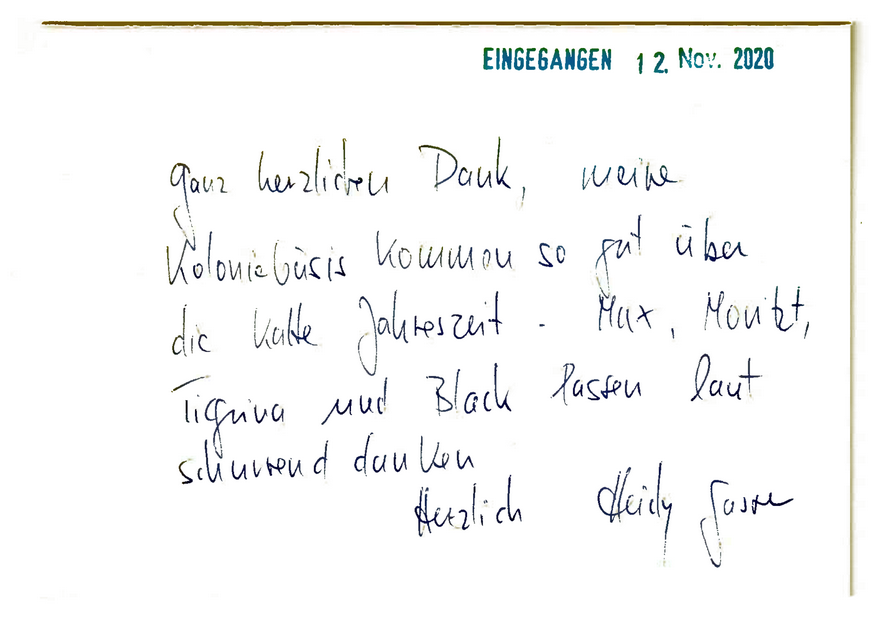 EINGEGANGEN 12. Nov. 2020
ganz herzlichen Dank, meine
Koloniebüsis kommen so gut über
die kalte Jahreszeit. Max, Moritzt,
Tigrina und Black lassen laut
schnurrend danken
Herzlich Heidy